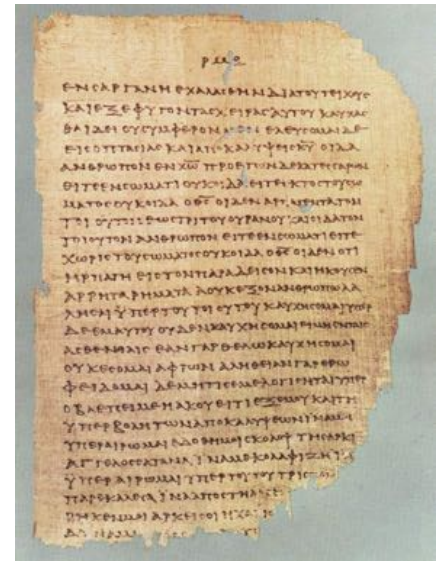 ρμε
ΕΝϹΑΡΓΑΝΗΕΧΑΛΑϹΘΗΝΔΙΑΤΟΥΤΕΙΧΟΥϹ
ΚΑΙΕΞΕΦΥΓΟΝΤΑϹΧΕΙΡΑϹΑΥΤΟΥΚΑΥΧΑϹ
ΘΑΙΔΕΙΟΥϹΥΜΦΕΡΟΝΕΛΕΥϹΟΜΑΙΔΕ
ΕΙϹΟΠΤΑϹΙΑϹΚΑΙΑΠΟΚΑΛΥΨΕΙϹΚ̅Υ̅ΟΙΔΑ
ΑΝΘΡΩΠΟΝΕΝΧ̅Ω̅ΠΡΟΕΤΩΝΔΕΚΑΤΕϹϹΑΡΩΝ
ΕΙΤΕΕΝϹΩΜΑΤΙΟΥΚΟΙΔΑΕΙΤΕΕΚΤΟϹΤΟΥϹΩ
ΜΑΤΟϹΟΥΚΟΙΔΑΟΘ̅Ϲ̅ΟΙΔΕΝΑΡΠΑΓΕΝΤΑΤΟΝ
ΤΟΙΟΥΤΟΝΕΩϹΤΡΙΤΟΥΟΥΡΑΝΟΥΚΑΙΟΙΔΑΤΟΝ
ΤΟΙΟΥΤΟΝΑΝΘΡΩΠΟΝΕΙΤΕΕΝϹΩΜΑΤΙΕΙΤΕ
ΧΩΡΙϹΤΟΥϹΩΜΑΤΟϹΟΥΚΟΙΔΑΟΘ̅Ϲ̅ΟΙΔΕΝΟΤΙ
ΗΡΠΑΓΗΕΙϹΤΟΝΠΑΡΑΔΕΙϹΟΝΚΑΙΗΚΟΥϹΕΝ
ΑΡΡΗΤΑΡΗΜΑΤΑΑΟΥΚΕΞΟΝΑΝΘΡΩΠΩΛΑ
ΛΗϹΑΙΫΠΕΡΤΟΥΤΟΙΟΥΤΟΥΚΑΥΧΗϹΟΜΑΙΥΠΕΡ
ΔΕΕΜΑΥΤΟΥΟΥΔΕΝΚΑΥΧΗϹΟΜΑΙΕΙΜΗΕΝΤΑΙϹ
ΑϹΘΕΝΙΑΙϹΕΑΝΓΑΡΘΕΛΩΚΑΥΧΗϹΟΜΑΙ
ΟΥΚΕϹΟΜΑΙΑΦΡΩΝΑΛΗΘΕΙΑΝΓΑΡΕΡΩ
ΦΕΙΔΟΜΑΙΔΕΜΗΤΙϹΕΜΕΛΟΓΙϹΗΤΑΙΥΠΕΡ
ΟΒΛΕΠΕΙΜΕΗΑΚΟΥΕΙΤΙΕΞΕΜΟΥΚΑΙΤΗ
ΫΠΕΡΒΟΛΗΤΩΝΑΠΟΚΑΛΥΨΕΩΝΙΝΑΜΗ
ΥΠΕΡΑΙΡΩΜΑΙΕΔΟΘΗΜΟΙϹΚΟΛΟΨΤΗϹΑΡΚΙ
ΑΓΓΕΛΟϹϹΑΤΑΝΑΪΝΑΜΕΚΟΛΑΦΙΖΗΙ
ΫΠΕΡΑΙΡΩΜΑΙΥΠΕΡΤΟΥΤΟΥΤΡΙϹ
ΠΑΡΕΚΑΛΕϹΑΙΝΑΑΠΟϹΤΗ
ΡΗΚΕΝΜΟΙΑΡΚΕΙϹΟΙΗΧΑ
ΔΥΝΑΜ